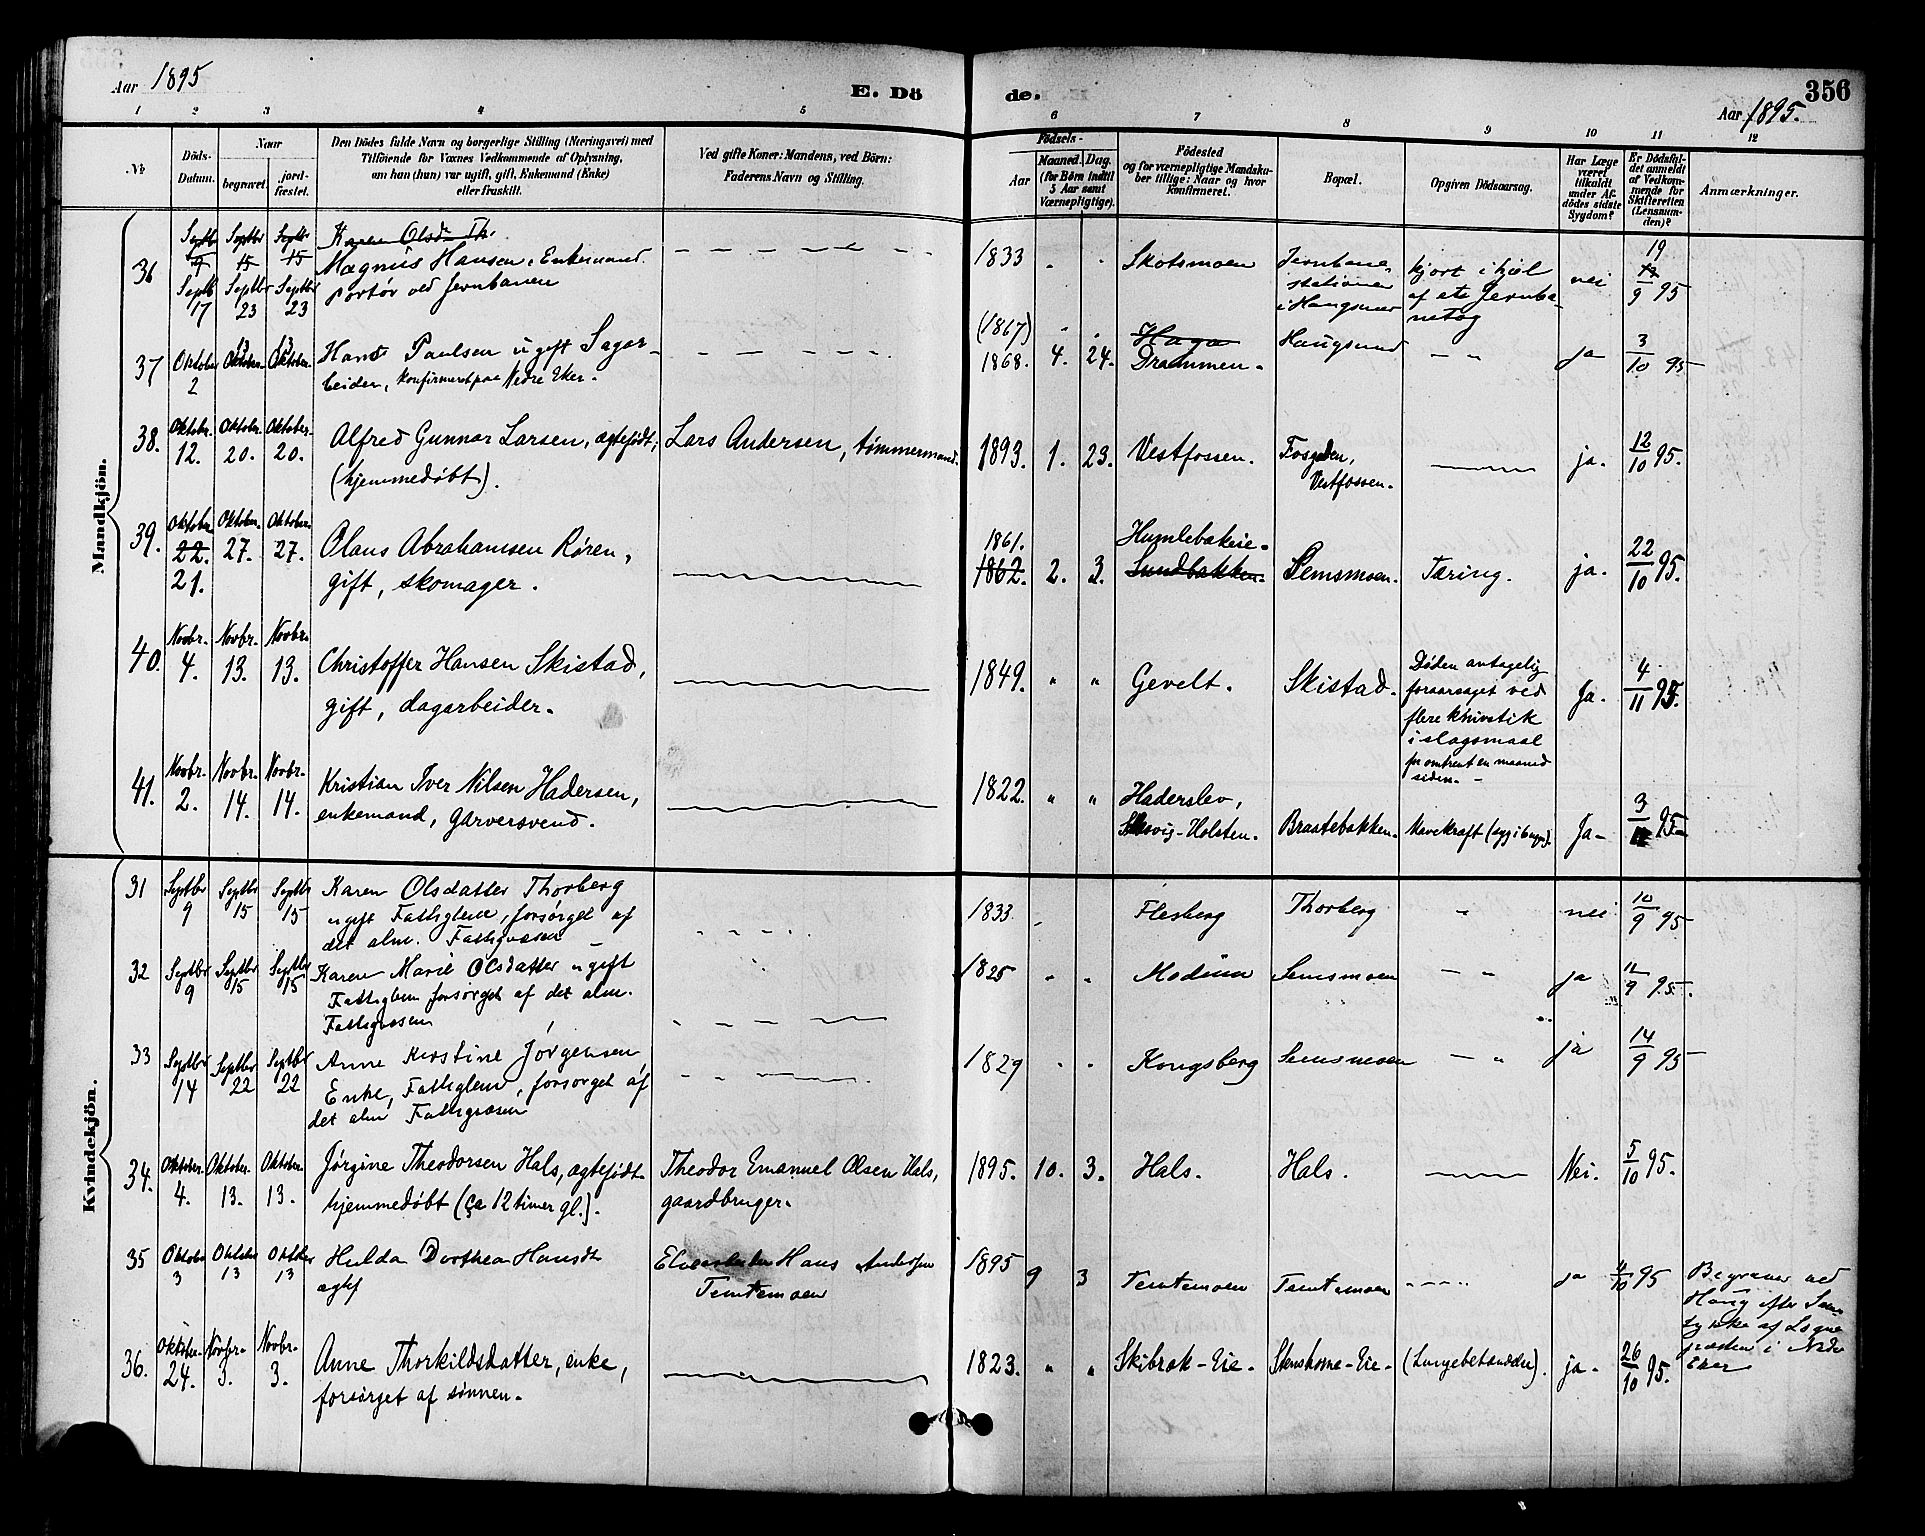 Aar 1895
E. Dö
de.
356
Aar 1895.
1 2 3 4 5 6 7 8 9 10 11 12
No
Döds-
Datum.
Naar
begravet.
jord-
fæstet.
Den Dödes fulde Navn og borgerlige Stilling (Næringsvei) med
Tilföiende for Voxnes Vedkommende af Oplysning,
om han (hun) var ugift, gift, Enkemand (Enke)
eller fraskilt.
Ved gifte Koner: Mandens, ved Börn:
Faderens Navn og Stilling.
Födsels-
Aar
Maaned. Dag.
(for Börn indtil
5 Aar samt
Værnepligtige).
Födested
og for værnepligtige Mandska-
ber tillige: Naar og hvor
konfirmeret.
Bopæl.
Opgiven Dödsaarsag.
Har Læge
været
tilkaldt
under Af-
dödes sidste
Sygdom?
Er Dödsfal-
det anmeldt
af Vedkom-
mende for
Skifteretten
(Lensman-
den)?
Anmærkninger.
Mandkjön.
36
Septb 9 Septbr 15 Septbr 15
Karen Olsd Th.
Septb 17 Septbr 23 Septbr 23
Magnus Hansen, Enkemand.
portør ved Jernbanen
1833
Skotsmoen
Jernbane-
stationen
i Haugsund
kjørt ihjæl
af et Jernba-
netog
nei
19
9 95
37
Oktober 2 Oktober 13 Oktober 13
Hans Paulsen ugift Sagar-
beider, konfirmeret paa Nedre Eker.
(1867)
1868. 4. 24.
Haga
Drammen.
Haugsund
ja
3/10 95
38.
Oktobr. 12. Oktober. 20. Oktober. 20.
Alfred Gunnar Larsen, ægtefødt;
(hjemmedøbt).
Lars Andersen, tømmermand.
1893. 1. 23.
Vestfossen.
Vestfossen.
ja.
12/10 95.
39.
Oktober 22. 21. Oktober. 27. Oktober. 27.
Olaus Abrahamsen Røren,
gift, skomager.
1861.
1862. 2. 3.
Humlebakeie.
Sundbakken.
Semsmoen.
Tæring.
ja.
22/10 95.
40.
Novbr. 4. Novbr. 13. Novbr. 13.
Christoffer Hansen Skistad,
gift, dagarbeider.
1849. " "
Gevelt.
Skistad.
Døden antagelig
foraarsaget ved
flere knivstik
i slagsmaal
for omtrent en maaned
siden.
Ja.
4/11 95.
41.
Novbr. 2. Novbr. 14. Novbr. 14.
Kristian Iver Nilsen Hadersen,
enkemand, garversvend.
1822. " "
Haderslev,
Slesvig-Holsten.
Braatebakken.
Mavekræft
Ja
3/11 95
Kvindekjön.
31
Septbr 9 Septbr 15 Septbr 15
Karen Olsdatter Thorberg
ugift Fattiglem, forsørget af
det alm. Fattigvæsen
1833
Flesberg
Thorberg
"
nei
10/9 95
32
Septbr 9 Septbr 15 Septbr 15
Karen Marie Olsdatter ugift
Fattiglem forsørget af det alm.
Fattigvæsen
1825
Modum
Semsmoen
"
ja
9 95.
33
Septbr 14 Septbr 22 Septbr 22
Anne Kirstine Jørgensen
Enke, Fattiglem, forsørget af
det alm Fattigvæsen
1829
Kongsberg
Semsmoen
"
ja
14/9 95
34.
Oktober. 4. Oktober. 13. Oktober. 13.
Jørgine Theodorsen Hals, ægtefødt
hjemmedøbt (ca 12 timer gl.).
Theodor Emanuel Olsen Hals,
gaardbruger.
1895. 10. 3.
Hals.
Hals.
Nei.
5/10 95.
35
Oktober 3 Oktober 13 Oktober 13
Hulda Dorthea Hansdt
ægtef
Hans Andersen
Temtemoen
1895 9 3
Temtemoen
Temtemoen
ja
4/10 95
Begraves ved
Haug efter Sam-
tykke af Sogne-
præsten i Nedre
Eker
36.
Oktober. 24. Novbr. 3. Novbr. 3.
Anne Thorkildsdatter, enke,
forsørget af sønnen.
1823. " "
Skibrak-Eie.
Stenshorne-Eie.
(Lungebetændelse).
ja.
26/10 95.